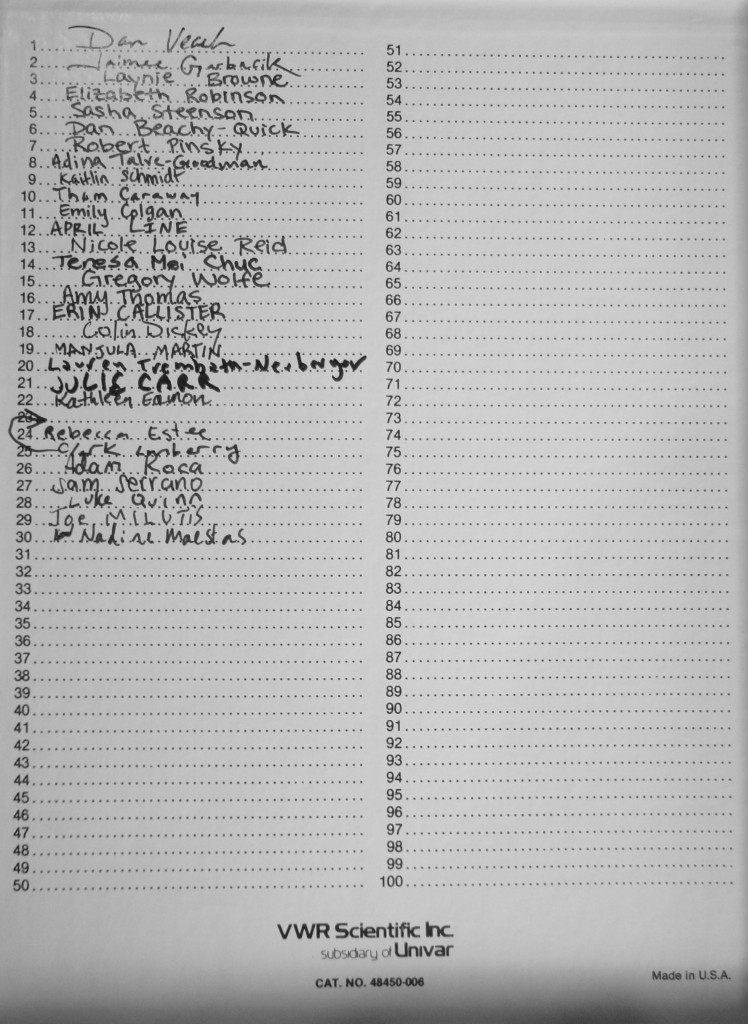 1 Dan Veach
2 Jaimee Garbacik
3 Laynie Browne
4 Elizabeth Robinson
5 Sasha Steenson
6 Dan Beachy-Quick
7 Robert Pinsky
8 Adina Talve-Goodman
9 Kaitlin Schmidt
10 Thom Caraway
11 Emily Colgan
12 APRIL LINE
13 Nicole Louise Reid
14 Teresa Mei Chuc
15 Gregory Wolfe
16 Amy Thomas
17 ERIN CALLISTER
18 Colin Dickey
19 MANJULA MARTIN
20 Lauren Trembath-Neuberger
21 JULIE CARR
22 Kathleen Eamon
23
24 Rebecca Estee
25 Clark Lunberry
26 Adam Roca
27 Sam Serrano
28 Luke Quinn
29 Joe MILUTIS
30 Nadine Maestas
31
32
33
34
35
36
37
38
39
40
41
42
43
44
45
46
47
48
49
50
51
52
53
54
55
56
57
58
59
60
61
62
63
64
65
66
67
68
69
70
71
72
73
74
75
76
77
78
79
80
81
82
83
84
85
86
87
88
89
90
91
92
93
94
95
96
97
98
99
100
VWR Scientific Inc.
subsidiary of Univar
CAT. NO. 48450-006
Made in U.S.A.